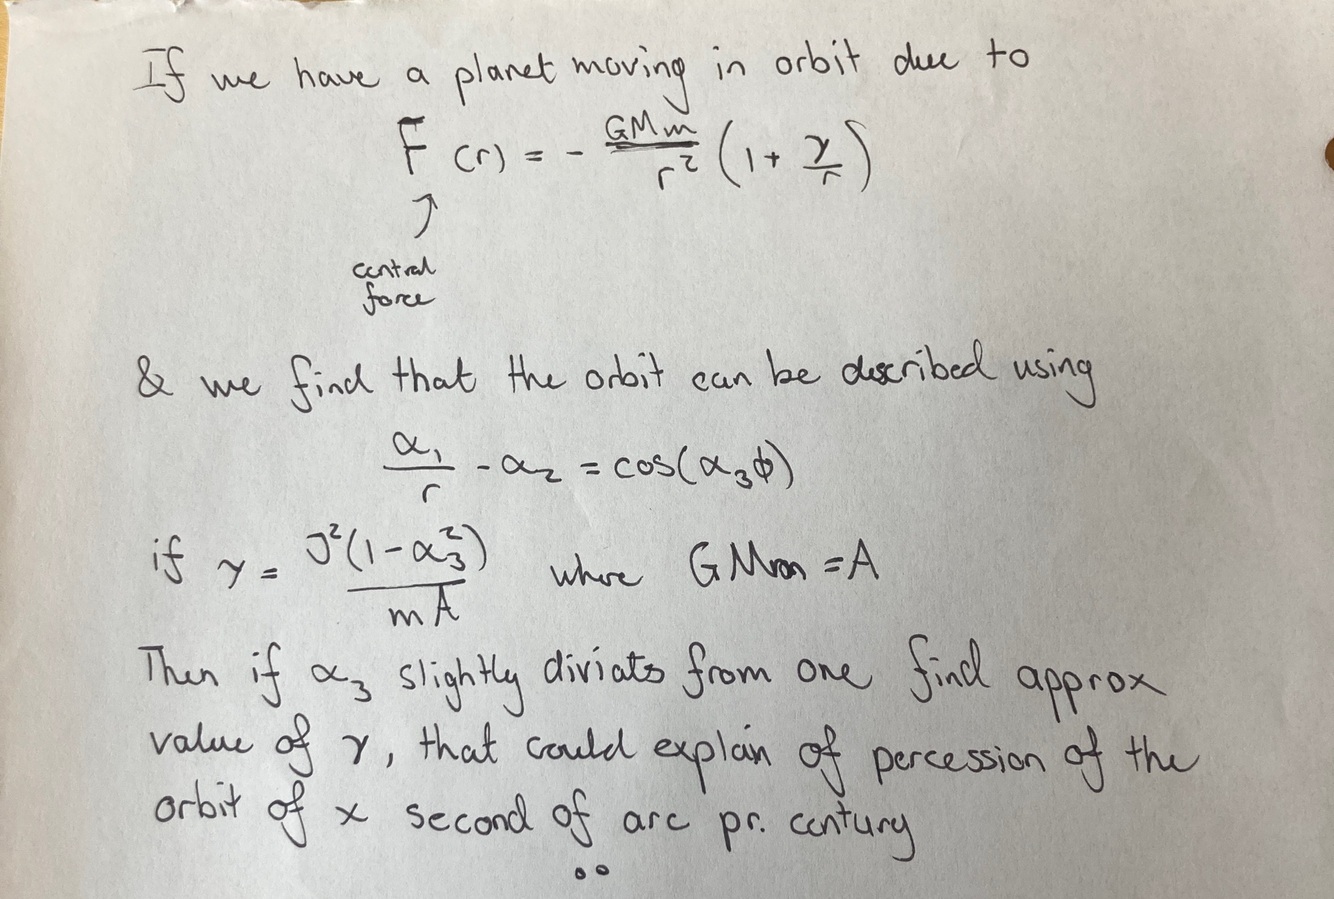 If we have a planet moving in orbit due to
F(r) = - GMm/r² (1 + γ/r)
↑
central
force
& we find that the orbit can be described using
α₁/r - α₂ = cos(α₃ϕ)
if γ = J²(1-α₃²)/mA where GMm = A
Then if α₃ slightly diviats from one find approx
value of γ, that could explain of percession of the
orbit of x second of arc pr. century